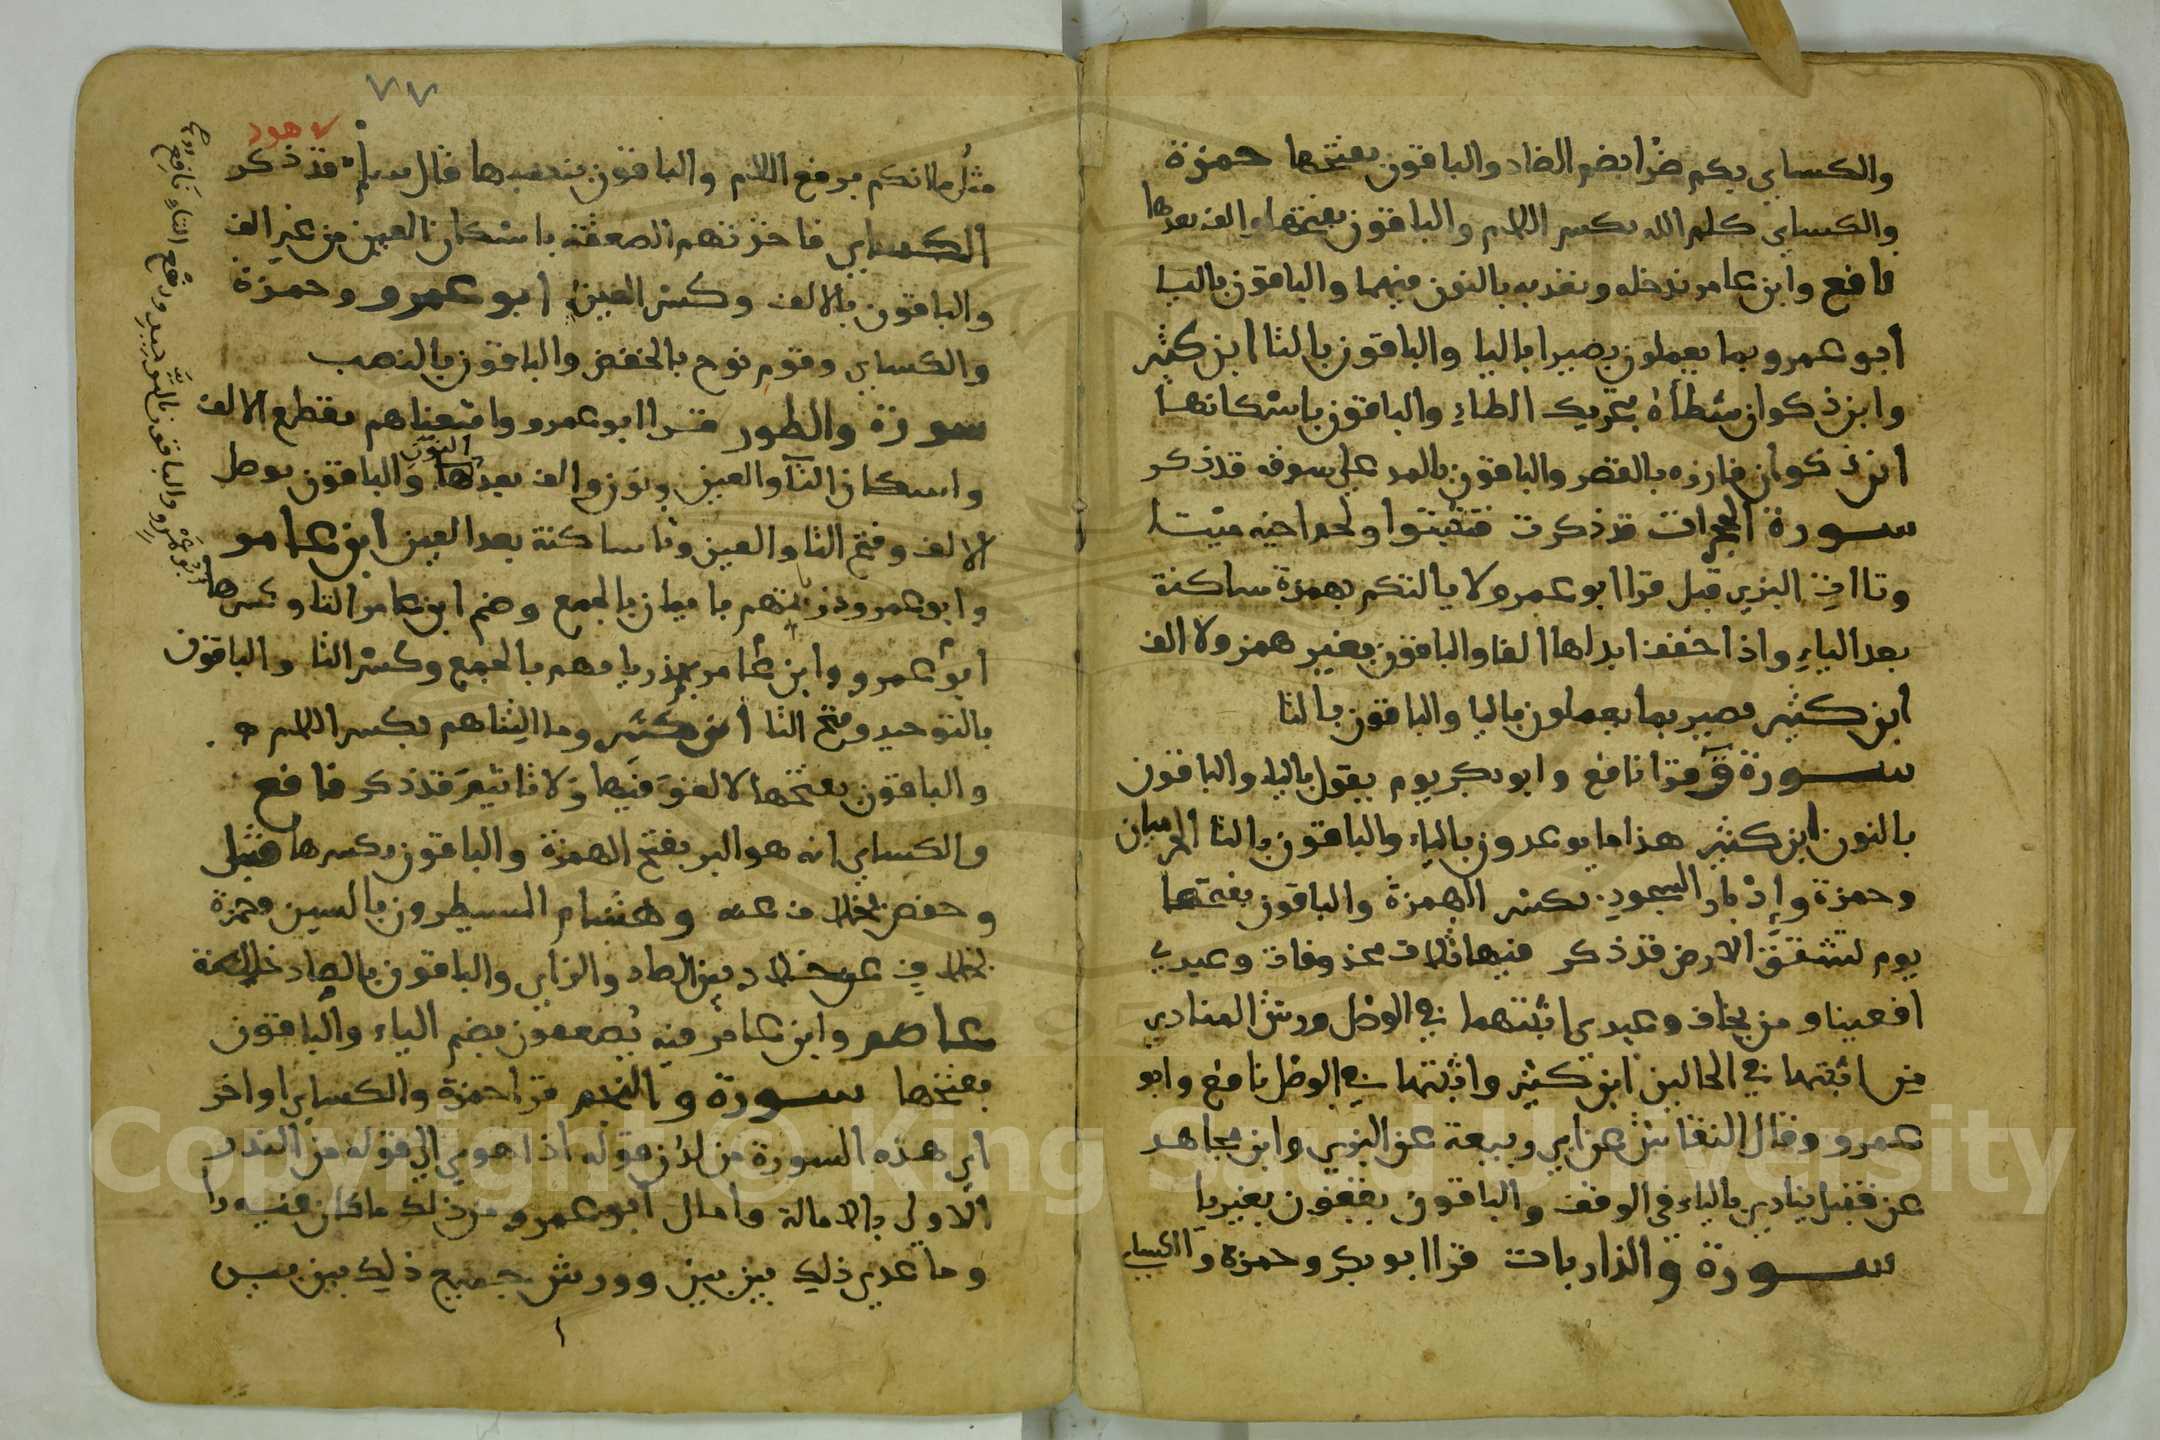 والكسايي بكم ضرا بضم الضاد والباقون بفتحها حمزة
والكسايي كلم الله بكسر اللام والباقون بفتحها والف بعدها
نافع وابن عامر ندخله ونعذبه بالنون فيهما والباقون باليا
ابو عمرو بما يعملون بصيرا باليا والباقون بالتا ابن كثير
وابن ذكوان شطأه بتحريك الطاء والباقون باسكانها
ابن ذكوان فازره بالقصر والباقون بالمد على سوقه قد ذكر
سورة الحجرات قد ذكرت فتثبتوا ولحم اخيه ميتا
وتاات البزي قبل قرا ابو عمرو لا يالتكم بهمزة ساكنة
بعد الياء واذا خفف ابدلها الفا والباقون بغير همز ولا الف
ابن كثير بصير بما يعملون باليا والباقون بالتا
سورة ق قرا نافع وابو بكر يوم يقول بالياء والباقون
بالنون ابن كثير هذا ما يوعدون بالياء والباقون بالتا الحرميان
وحمزة وإدبار السجود بكسر الهمزة والباقون بفتحها
يوم تشقق الارض قد ذكر فيها ثلاث محذوفات وعيدي
افعينا و من يخاف وعيدي اثبتهما في الوصل ورش المنادي
من اثبتها في الحالين ابن كثير واثبتها في الوصل نافع وابو
عمرو وقال النقاش عن ابي ربيعة عن البزي وابن مجاهد
عن قنبل ينادي بالياء في الوقف والباقون يقفون بغير يا
سورة والذاريات قرا ابو بكر وحمزة والكسايي
٧٧
هود
مثل ما انكم برفع اللام والباقون بنصبها قال سلم قد ذكر
الكسايي فاخذتهم الصعقة باسكان العين من غير الف
والباقون بالالف وكسر العين ابو عمرو وحمزة
والكسايي وقوم نوح بالخفض والباقون بالنصب
سورة والطور قرا ابو عمرو واتبعناهم بقطع الالف
واسكان التا والعين ونون والف بعدها النون والباقون بوصل
الالف وفتح التا والعين وتا ساكنة بعد العين ابن عامر
وابو عمرو ذرياتهم بايمان بالجمع وضم ابن عامر التا وكسرها
ابو عمرو وابن عامر بهم ذرياتهم بالجمع وكسر التا والباقون
بالتوحيد وفتح التا ابن كثير وما التناهم بكسر اللام
والباقون بفتحها لا لغو فيها ولا تاثيم قد ذكر نافع
والكسايي انه هو البر بفتح الهمزة والباقون بكسرها قنبل
وحفص بخلاف عنه وهشام المسيطرون بالسين وحمزة
بخلاف عن خلاد بين الصاد والزاي والباقون بالصاد خالصة
عاصم وابن عامر فيه يصعقون بضم الياء والباقون
بفتحها سورة والنجم قرا حمزة والكسايي اواخر
اي هذه السورة من لدن قوله اذا هوى الى قوله من النذر
الاولى بالامالة وامال ابو عمرو من ذلك ما كان فيه را
وما عدى ذلك بين بين وورش جميع ذلك بين بين
ابو عمرو والباقون بالتوحيد ورفع التاء نافع